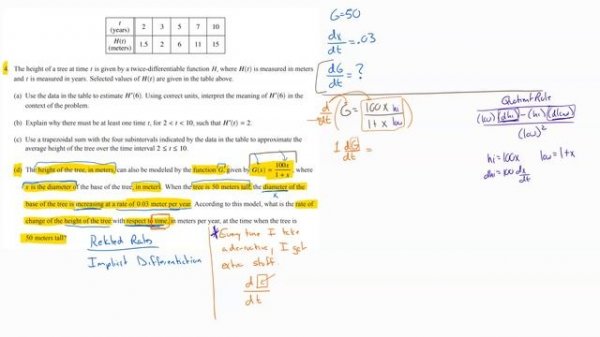 t
(years)
2 3 5 7 10
H(t)
(meters)
1.5 2 6 11 15
4. The height of a tree at time t is given by a twice-differentiable function H, where H(t) is measured in meters
and t is measured in years. Selected values of H(t) are given in the table above.
(a) Use the data in the table to estimate H′(6). Using correct units, interpret the meaning of H′(6) in the
context of the problem.
(b) Explain why there must be at least one time t, for 2 < t < 10, such that H′(t) = 2.
(c) Use a trapezoidal sum with the four subintervals indicated by the data in the table to approximate the
average height of the tree over the time interval 2 ≤ t ≤ 10.
(d) The height of the tree, in meters, can also be modeled by the function G, given by G(x) = 100x / 1 + x, where
x is the diameter of the base of the tree, in meters. When the tree is 50 meters tall, the diameter of the
base of the tree is increasing at a rate of 0.03 meter per year. According to this model, what is the rate of
change of the height of the tree with respect to time, in meters per year, at the time when the tree is
50 meters tall?
x
Related Rates
Implicit Differentiation
* Every time I take
a derivative, I get
extra stuff.
d
dt
G=50
dx/dt = .03
dG/dt = ?
d/dt (G = 100x hi / 1+x low)
1 dG/dt =
Quotient Rule
(low)(dhi) - (hi)(dlow)
(low)²
hi=100x low=1+x
dhi=100 dx/dt